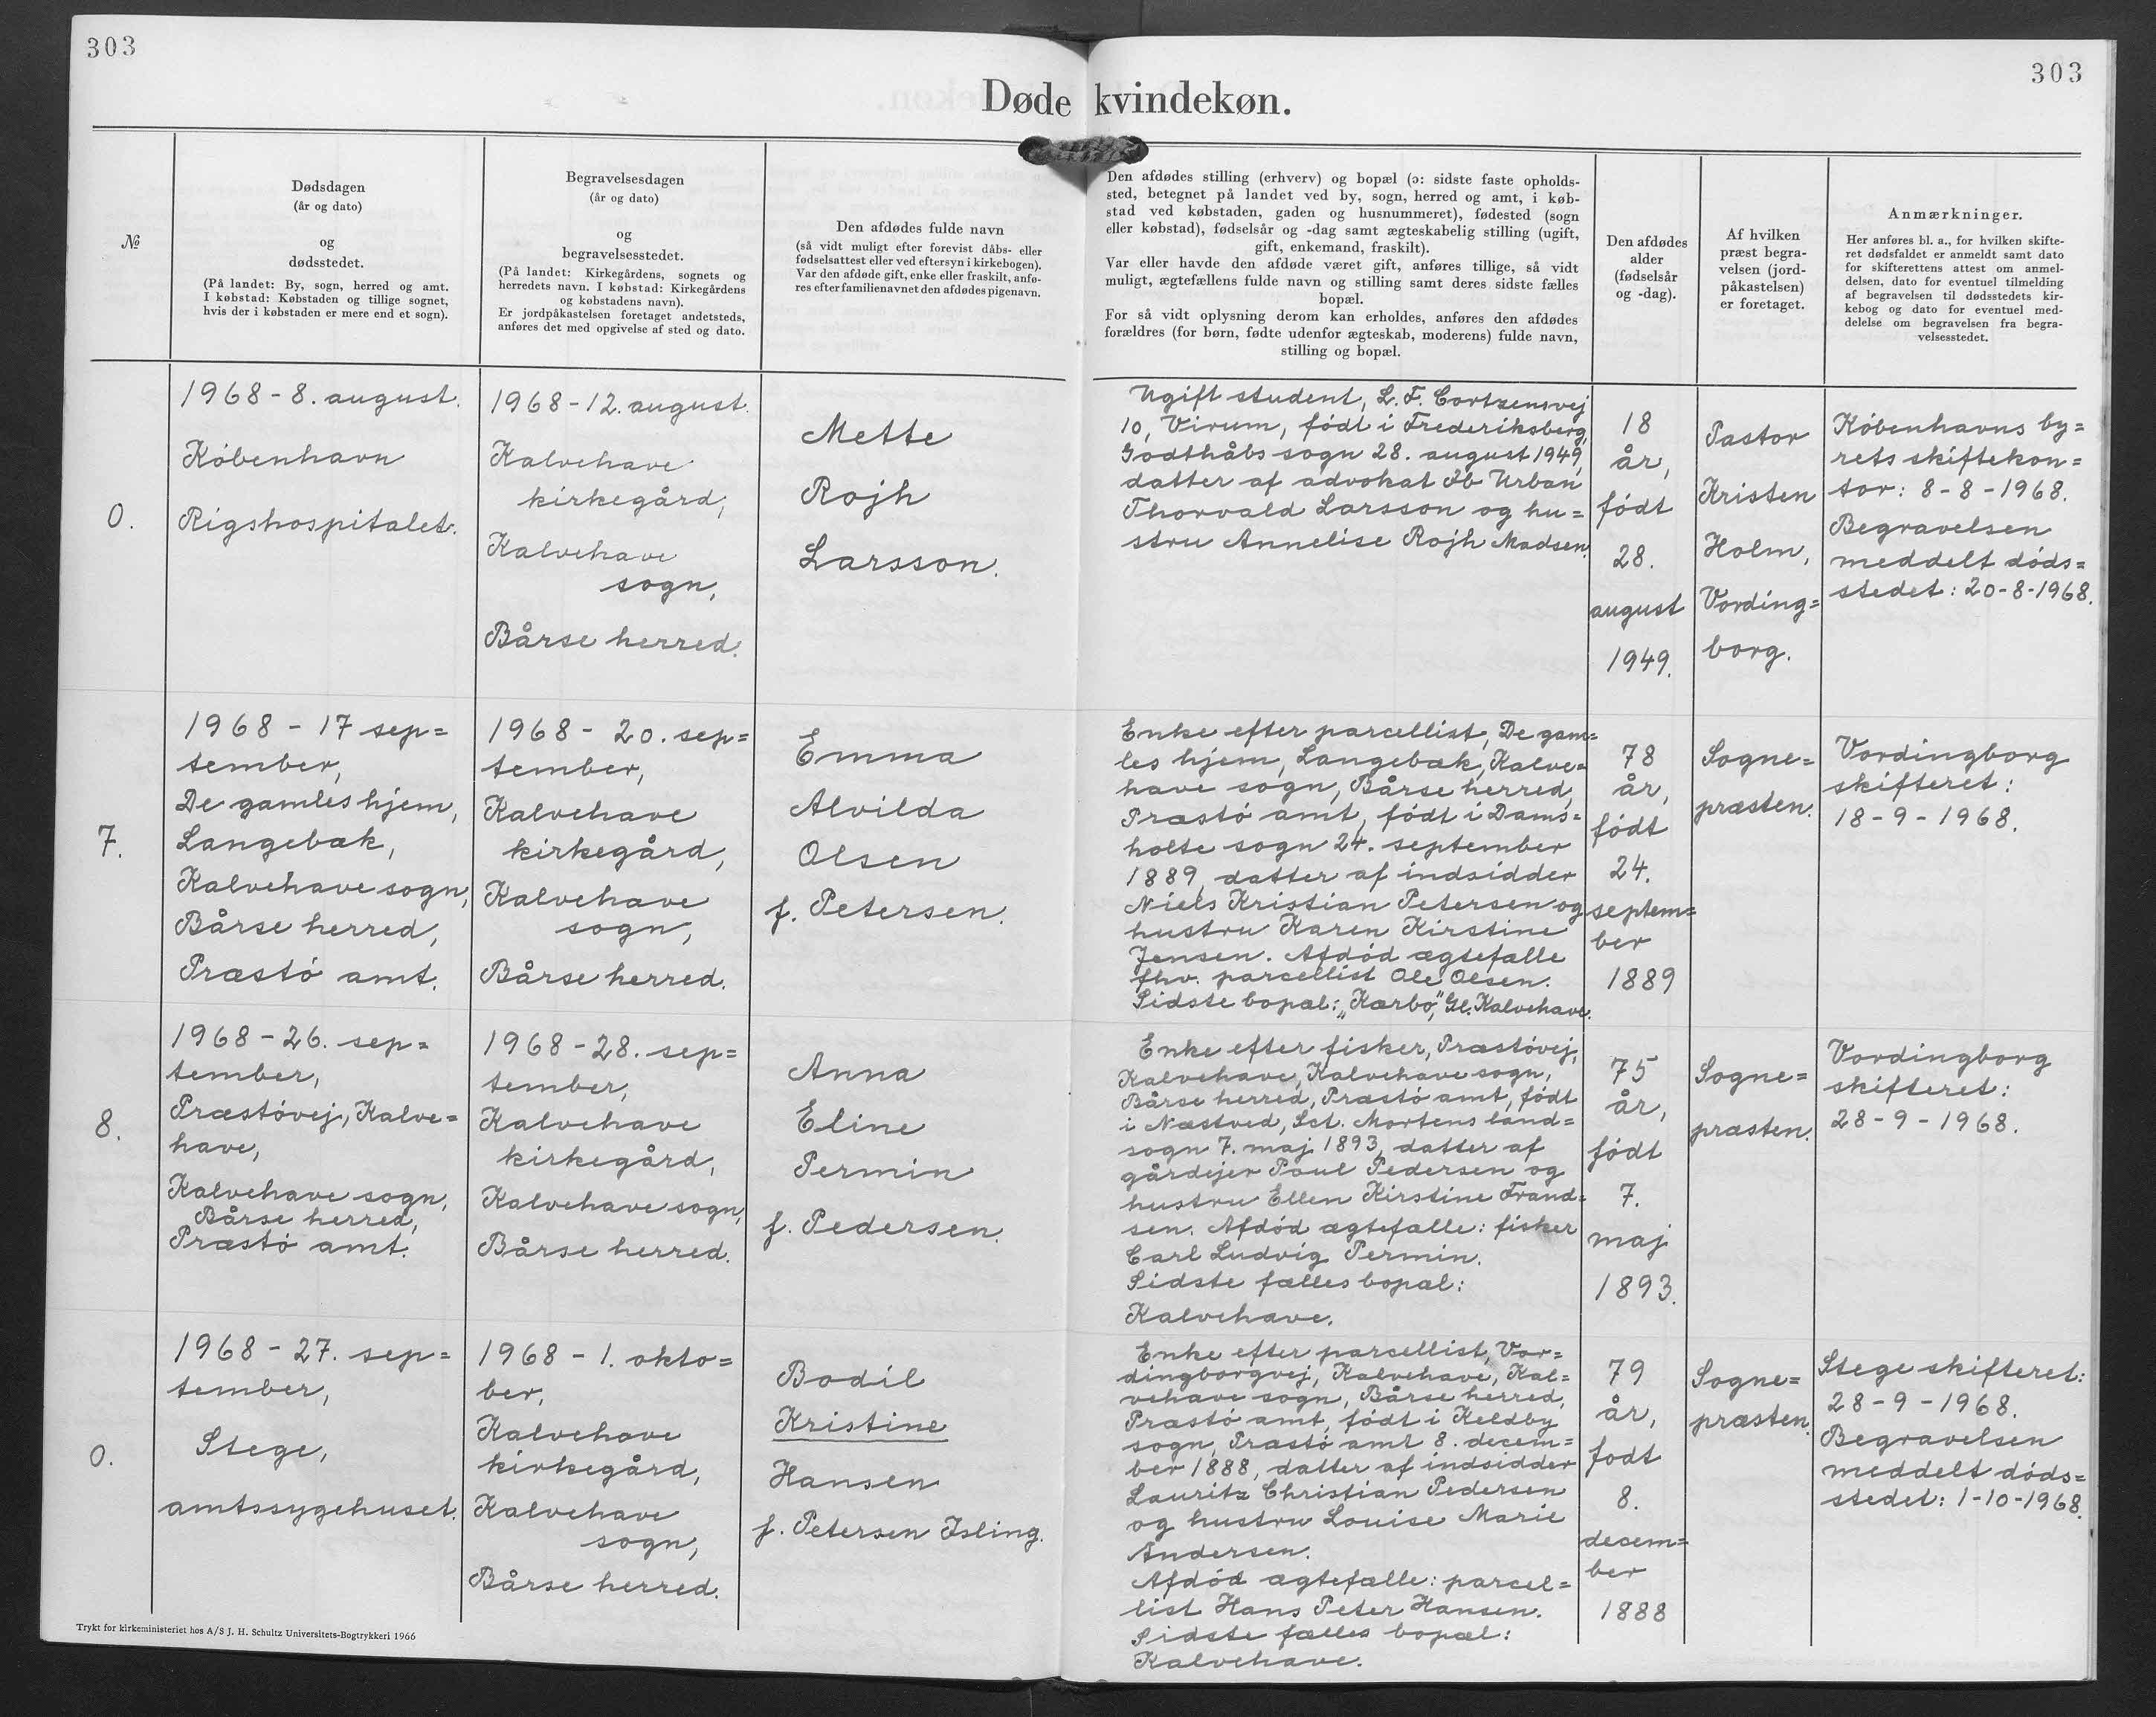 303
303
Døde kvindekøn.
№
Dødsdagen
(år og dato)
og
dødsstedet.
(På landet: By, sogn, herred og amt.
I købstad: Købstaden og tillige sognet,
hvis der i købstaden er mere end et sogn).
Begravelsesdagen
(år og dato)
og
begravelsesstedet.
(På landet: Kirkegårdens, sognets og
herredets navn. I købstad: Kirkegårdens
og købstadens navn).
Er jordpåkastelsen foretaget andetsteds,
anføres det med opgivelse af sted og dato.
Den afdødes fulde navn
(så vidt muligt efter forevist dåbs- eller
fødselsattest eller ved eftersyn i kirkebogen).
Var den afdøde gift, enke eller fraskilt, anfø-
res efter familienavnet den afdødes pigenavn.
Den afdødes stilling (erhverv) og bopæl (ɔ: sidste faste opholds-
sted, betegnet på landet ved by, sogn, herred og amt, i køb-
stad ved købstaden, gaden og husnummeret), fødested (sogn
eller købstad), fødselsår og -dag samt ægteskabelig stilling (ugift,
gift, enkemand, fraskilt).
Var eller havde den afdøde været gift, anføres tillige, så vidt
muligt, ægtefællens fulde navn og stilling samt deres sidste fælles
bopæl.
For så vidt oplysning derom kan erholdes, anføres den afdødes
forældres (for børn, fødte udenfor ægteskab, moderens) fulde navn,
stilling og bopæl.
Den afdødes
alder
(fødselsår
og -dag).
Af hvilken
præst begra-
velsen (jord-
påkastelsen)
er foretaget.
Anmærkninger.
Her anføres bl. a., for hvilken skifte-
ret dødsfaldet er anmeldt samt dato
for skifterettens attest om anmel-
delsen, dato for eventuel tilmelding
af begravelsen til dødsstedets kir-
kebog og dato for eventuel med-
delelse om begravelsen fra begra-
velsesstedet.
0.
1968 - 8. august.
København
Rigshospitalet.
1968 - 12. august.
Kalvehave
kirkegård,
Kalvehave
sogn,
Bårse herred.
Mette
Rojh
Larsson.
Ugift student, L.F. Cortzensvej
10, Virum, født i Frederiksberg,
Godthåbs sogn 28. august 1949,
datter af advokat Ib Urban
Thorvald Larsson og hu=
stru Annelise Rojh Madsen.
18
år,
født
28.
august
1949.
Pastor
Kristen
Holm,
Vording=
borg.
Københavns by=
rets skiftekon=
tor: 8-8-1968.
Begravelsen
meddelt døds=
stedet: 20-8-1968.
7.
1968 - 17 sep=
tember,
De gamles hjem,
Langebæk,
Kalvehave sogn,
Bårse herred,
Præstø amt.
1968 - 20. sep=
tember,
Kalvehave
kirkegård,
Kalvehave
sogn,
Bårse herred.
Emma
Alvilda
Olsen
f. Petersen.
Enke efter parcellist, De gam=
les hjem, Langebæk, Kalve=
have sogn, Bårse herred,
Præstø amt, født i Dams=
holte sogn 24. september
1889, datter af indsidder
Niels Kristian Petersen og
hustru Karen Kirstine
Jensen. Afdød ægtefælle
fhv. parcellist Ole Olsen.
Sidste bopæl: "Kærbo", Gl. Kalvehave.
78
år,
født
24.
septem=
ber
1889
Sogne=
præsten.
Vordingborg
skifteret:
18-9-1968.
8.
1968 - 26. sep=
tember,
Præstøvej, Kalve=
have,
Kalvehave sogn,
Bårse herred,
Præstø amt.
1968 - 28. sep=
tember,
Kalvehave
kirkegård,
Kalvehave sogn,
Bårse herred.
Anna
Eline
Permin
f. Pedersen.
Enke efter fisker, Præstøvej,
Kalvehave, Kalvehave sogn,
Bårse herred, Præstø amt, født
i Næstved, Sct. Mortens land=
sogn 7. maj 1893, datter af
gårdejer Poul Pedersen og
hustru Ellen Kirstine Frand=
sen. Afdød ægtefælle: fisker
Carl Ludvig Permin.
Sidste fælles bopæl:
Kalvehave.
75
år,
født
7.
maj
1893.
Sogne=
præsten.
Vordingborg
skifteret:
28-9-1968.
0.
1968 - 27. sep=
tember,
Stege,
amtssygehuset.
1968 - 1. okto=
ber,
Kalvehave
kirkegård,
Kalvehave
sogn,
Bårse herred.
Bodil
Kristine
Hansen
f. Petersen Isling.
Enke efter parcellist, Vor=
dingborgvej, Kalvehave, Kal=
vehave sogn, Bårse herred,
Præstø amt, født i Keldby
sogn, Præstø amt 8. decem=
ber 1888, datter af indsidder
Lauritz Christian Pedersen
og hustru Louise Marie
Andersen.
Afdød ægtefælle: parcel=
list Hans Peter Hansen.
Sidste fælles bopæl:
Kalvehave.
79
år,
født
8.
decem=
ber
1888
Sogne=
præsten.
Stege skifteret:
28-9-1968.
Begravelsen
meddelt døds=
stedet: 1-10-1968.
Trykt for kirkeministeriet hos A/S J. H. Schultz Universitets-Bogtrykkeri 1966